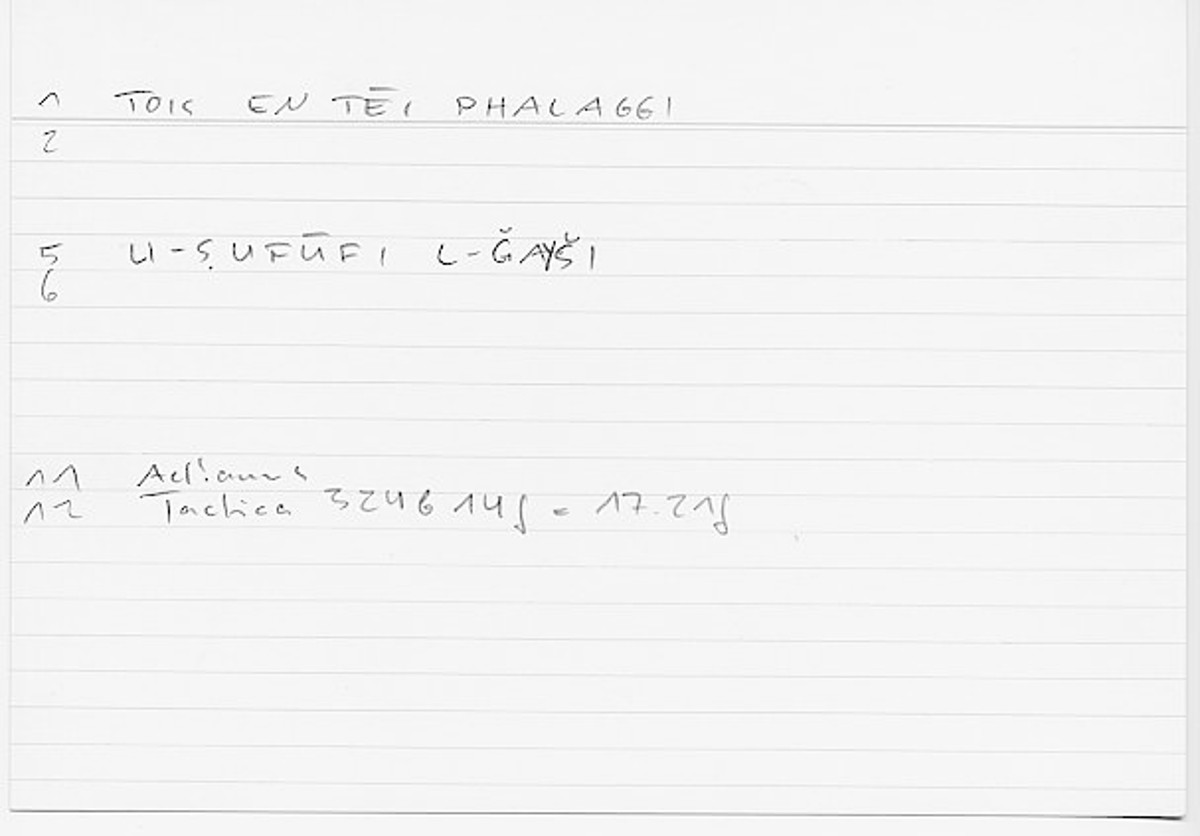 1 TOIS EN TĒI PHALAGGI
2
5 LI-ṢUFŪFI L-ǦAYŠI
6
11 Aelianus
12 Tactica 324b 14f = 17.21f